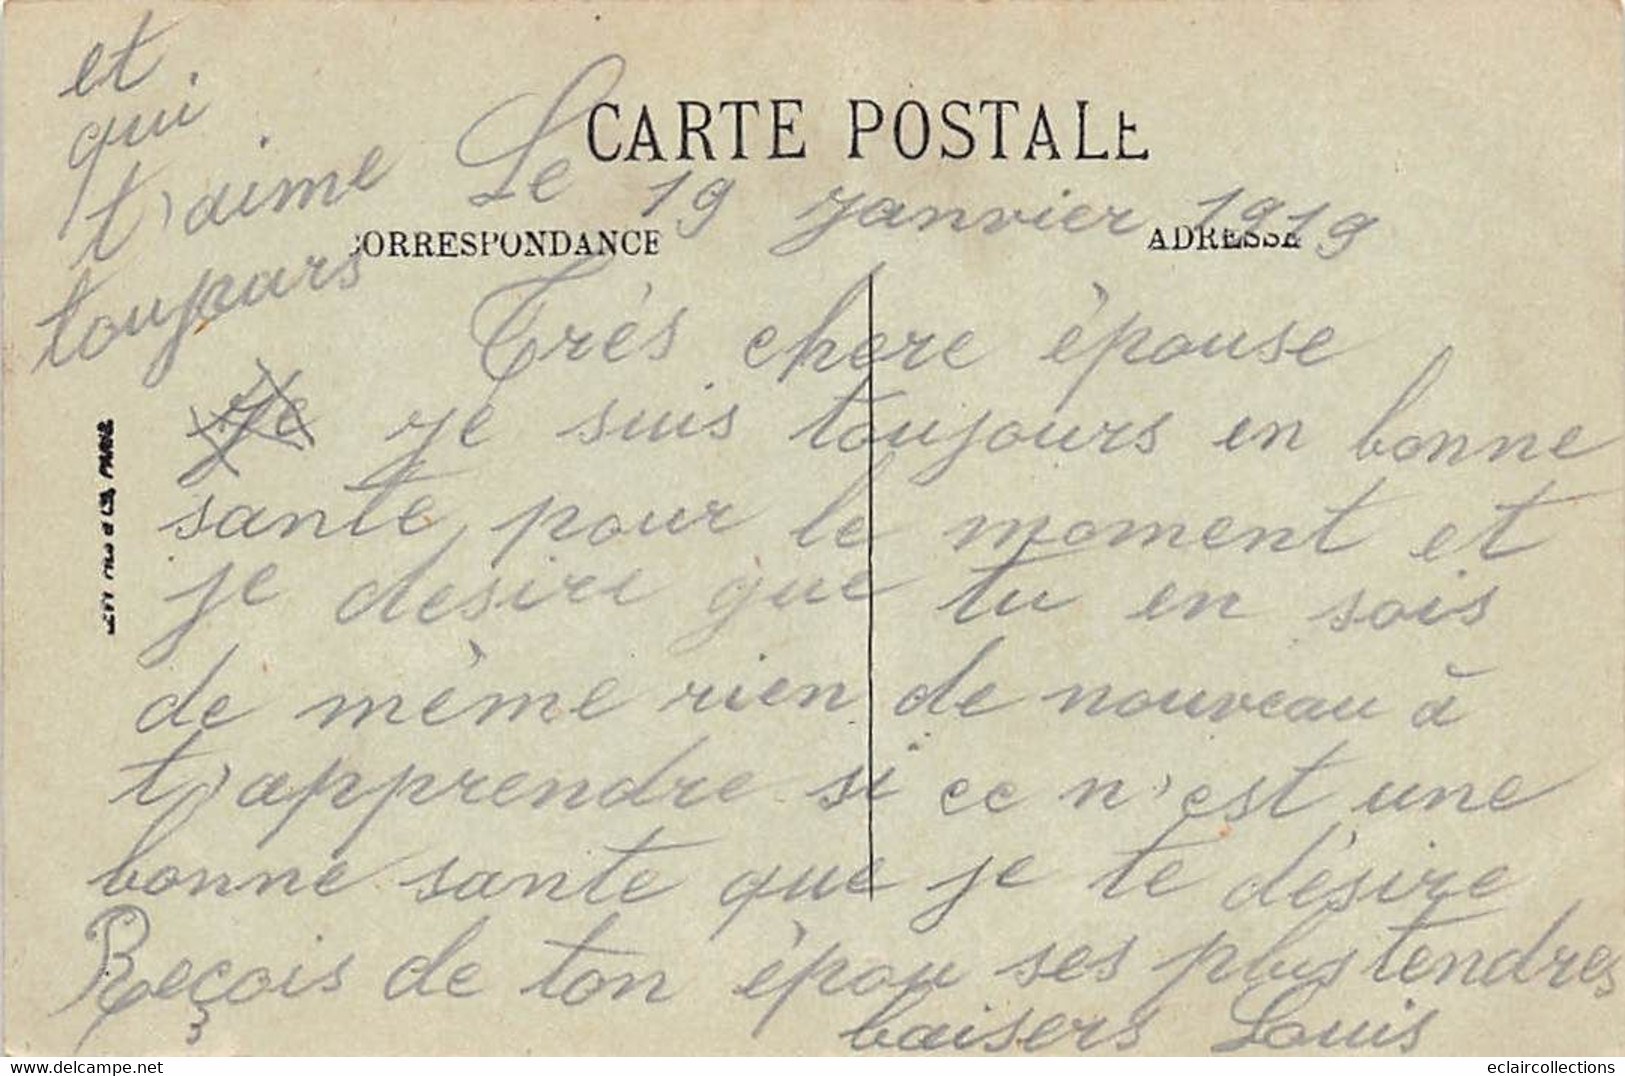 CARTE POSTALE
CORRESPONDANCE
ADRESSE
Le 19 Janvier 1919
Très chere èpouse
Je je suis toujours en bonne
sante, pour le moment et
je desire que tu en sois
de même rien de nouveau à
t'apprendre si ce n'est une
bonne sante que je te désire
Reçois de ton èpou ses plus tendres
baisers Louis
et
qui
t'aime
toujours
eclaircollections